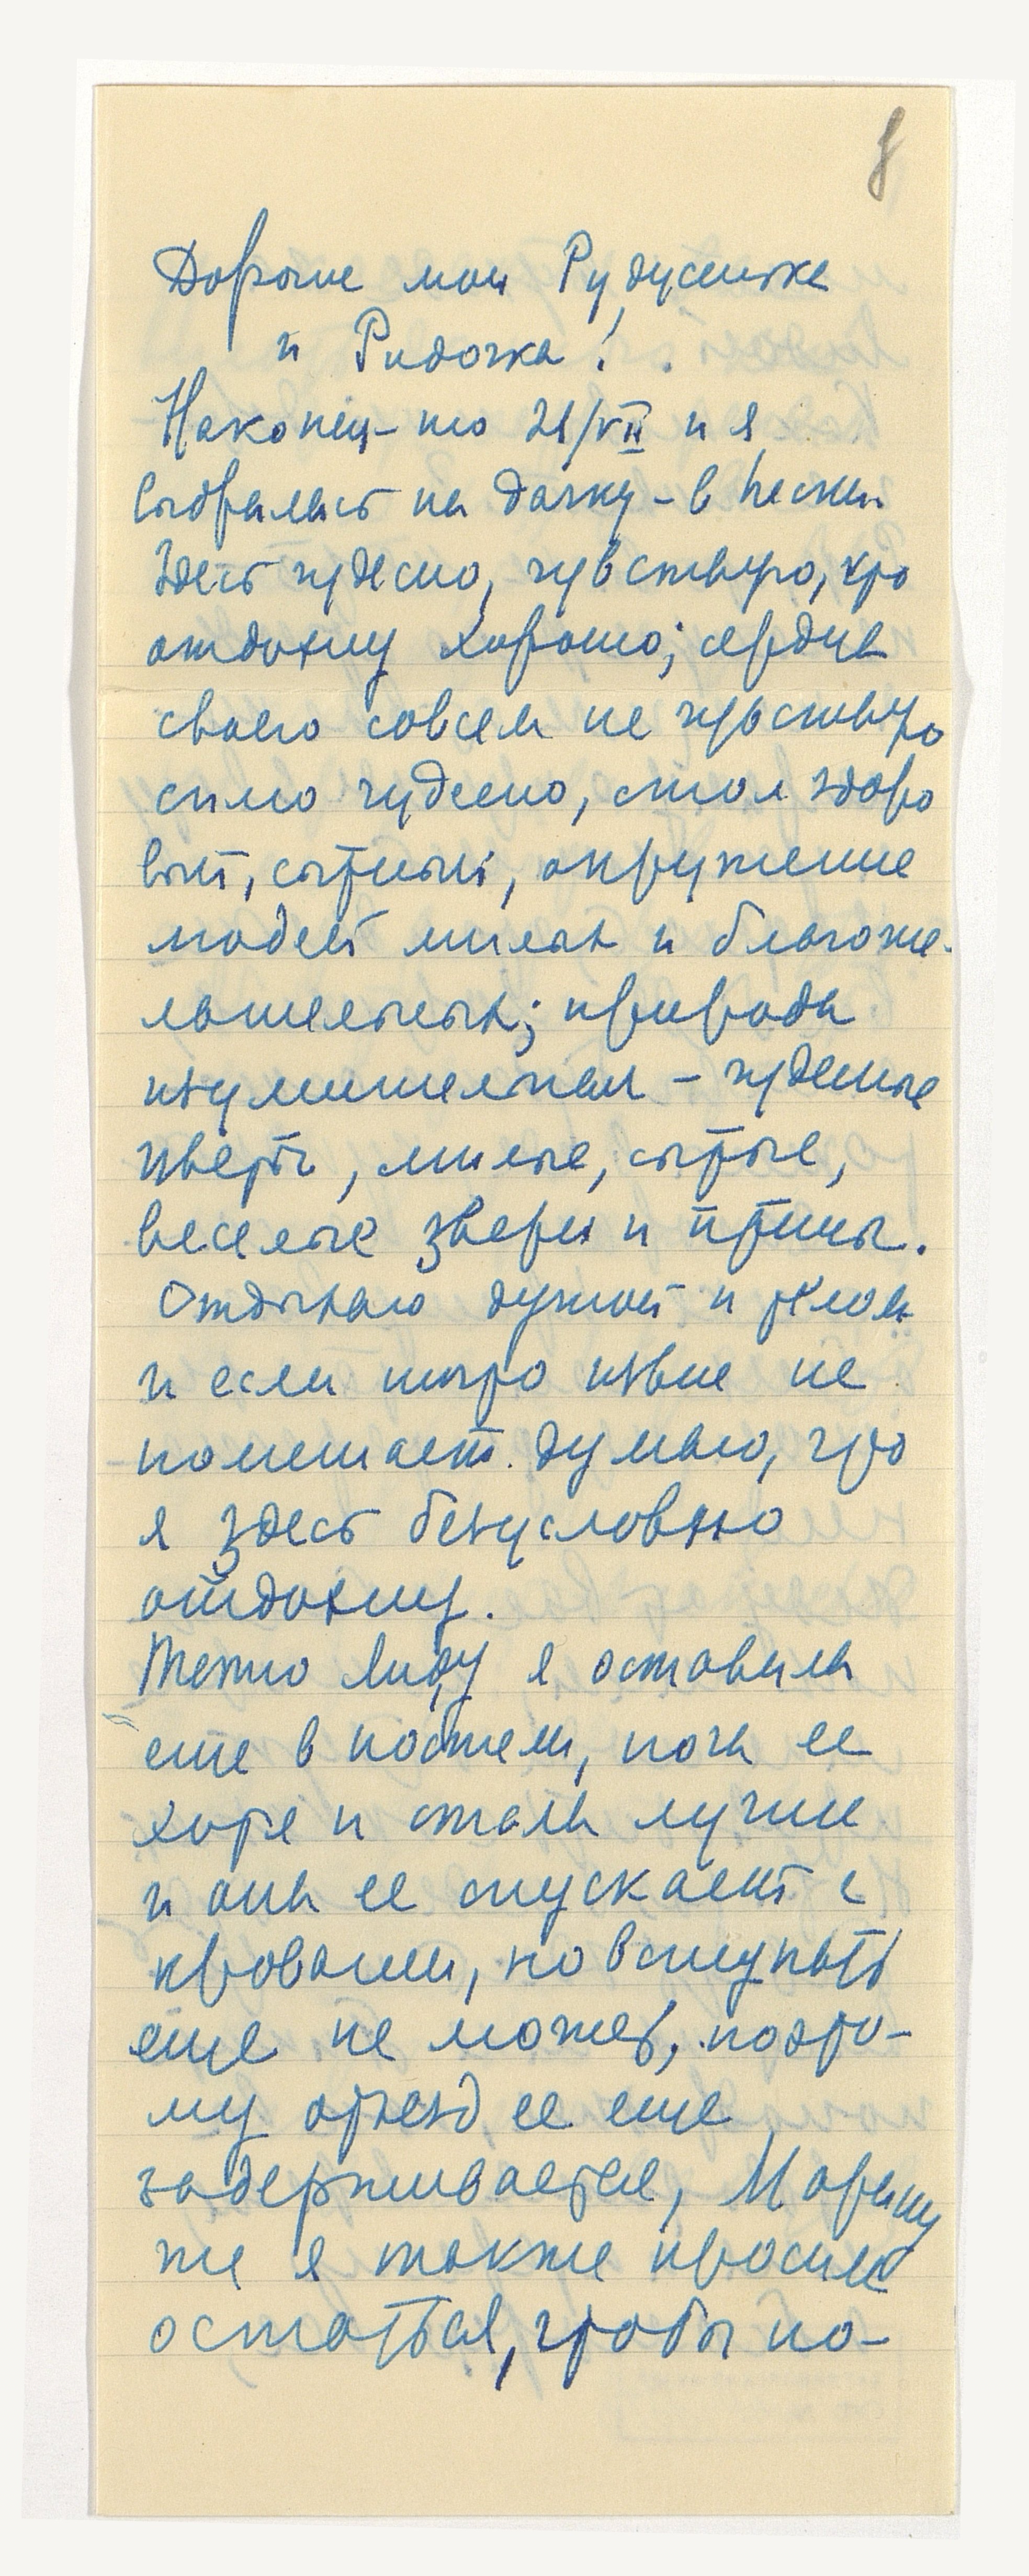 8
Дорогие мои Рудусенька
и Ридочка!
Наконец-то 21/VII и я
выбралась на дачку - в Пески
Здесь чудесно, чувствую, что
отдохну хорошо; сердца
своего совсем не чувствую
сплю чудесно, стол здоро
вый, сытный, окружение
людей милых и благоже-
лательных; природа
изумительная - чудесные
цветы, милые, сытые,
веселые звери и птицы.
Отдыхаю душой и телом
и если что извне не
помешает думаю, что
я здесь безусловно
отдохну.
Тетю Лиду я оставила
еще в постели, нога ее
хотя и стала лучше
и она ее спускает с
кровати, но вступать
еще не может, поэто-
му отъезд ее еще
задерживается, Марину
же я также просила
остаться, чтобы по-